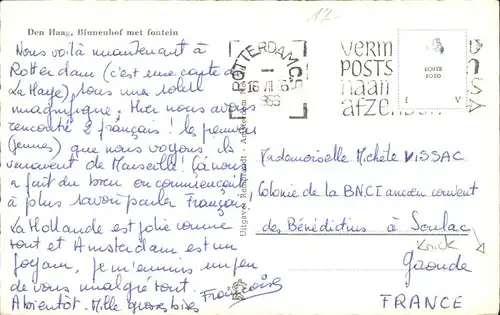 Den Haag, Binnenhof met fontein
17-
Nous voilà maintenant à
Rotterdam (c'est une carte de
La Haye), sous une soleil
magnifique. Hier nous avons
rencontré 2 français! la première
(jeunes) que nous voyons. ils
venaient de Marseille! Ça nous
a fait du bien on commençait
à plus savoir parler Français,
La Hollande est jolie comme
tout et Amsterdam est un
joyau, je m'ennuis un peu
de vous malgré tout.
A bientôt. Mille grosses bises
Françoise
ROTTERDAM C.S.
16 VII 16
1959
VERM
POSTS
naam
afzen
ECHTE
FOTO
f V
Uitgave Rembrandt - Amsterdam
Mademoiselle Michèle VISSAC
Colonie de la BNCI ancien couvent
des Bénédictins à Soulac
Gironde
FRANCE